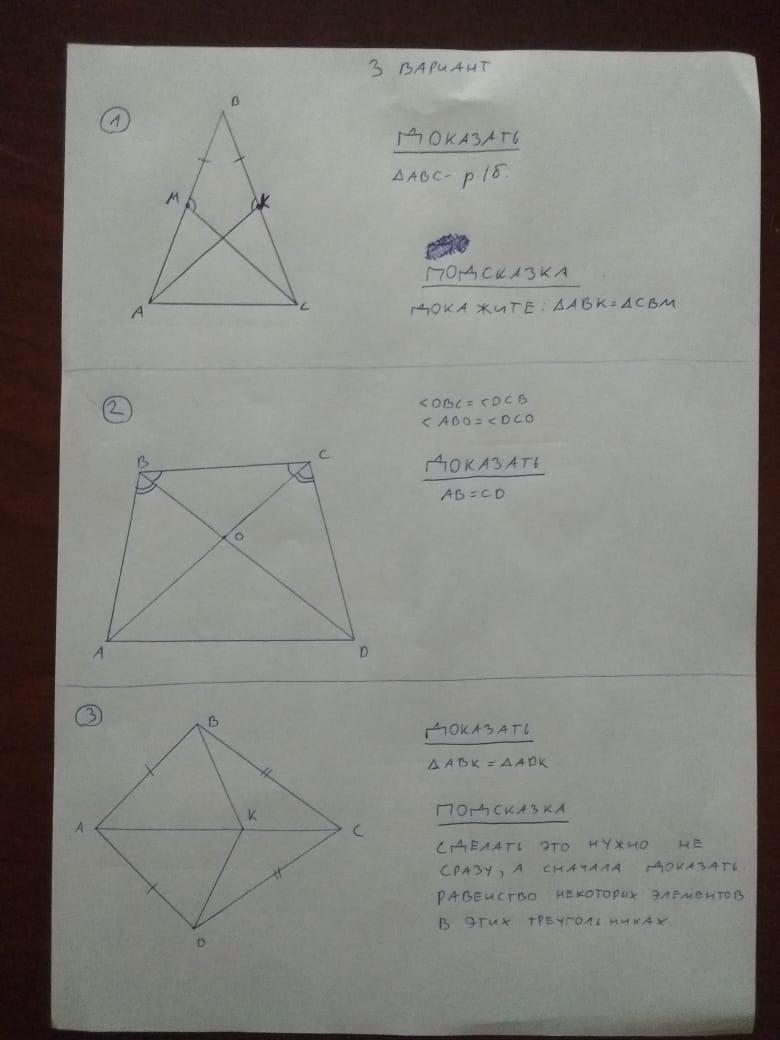 3 ВАРИАНТ
1
B
M
K
A
C
ДОКАЗАТЬ
ΔABC- р/б.
ПОДСКАЗКА
ДОКАЖИТЕ: ΔABK=ΔCBM
2
B
C
O
A
D
<OBC=<OCB
<ABO=<DCO
ДОКАЗАТЬ
AB=CD
3
B
A
K
C
D
ДОКАЗАТЬ
ΔABK=ΔADK
ПОДСКАЗКА
СДЕЛАТЬ ЭТО НУЖНО НЕ
СРАЗУ, А СНАЧАЛА ДОКАЗАТЬ
РАВЕНСТВО НЕКОТОРЫХ ЭЛЕМЕНТОВ
В ЭТИХ ТРЕУГОЛЬНИКАХ